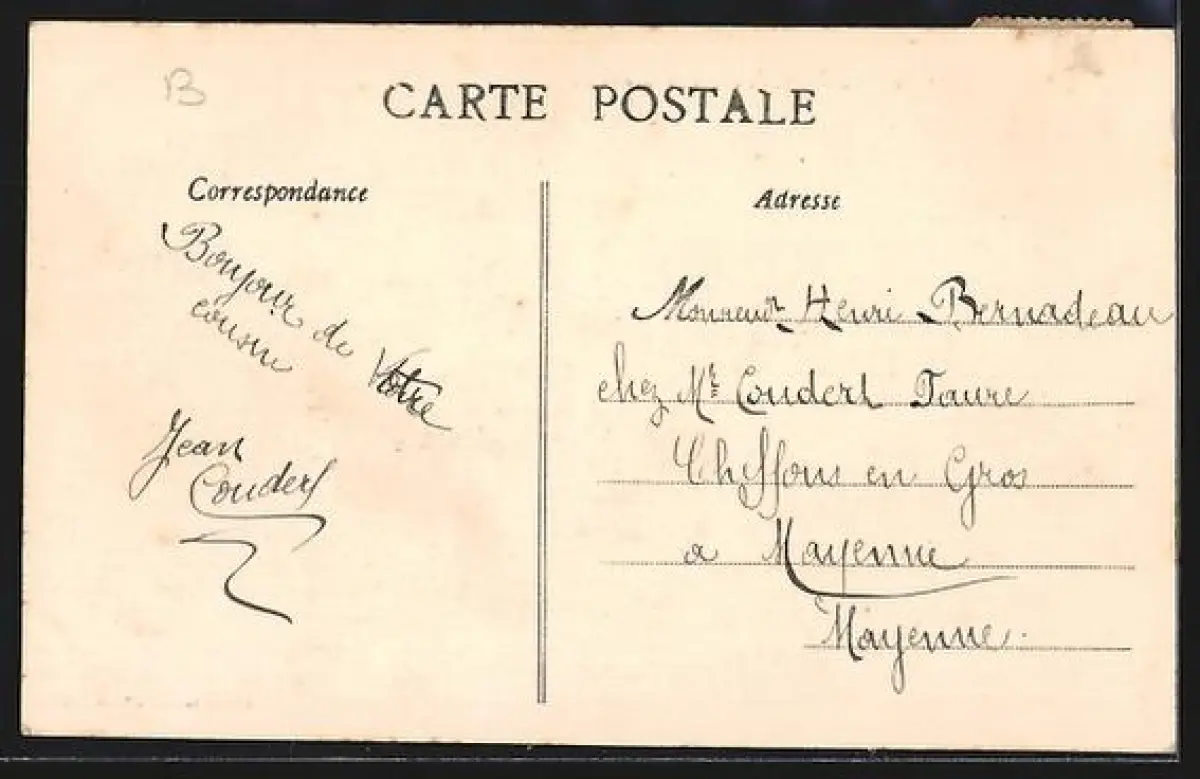 B
CARTE POSTALE
Correspondance
Bonjour de Votre
cousin
Jean
Coudert
Adresse
Monsieur Henri Bernadeau
chez Mr Coudert Faure
Chiffons en Gros
a Mayenne
Mayenne.